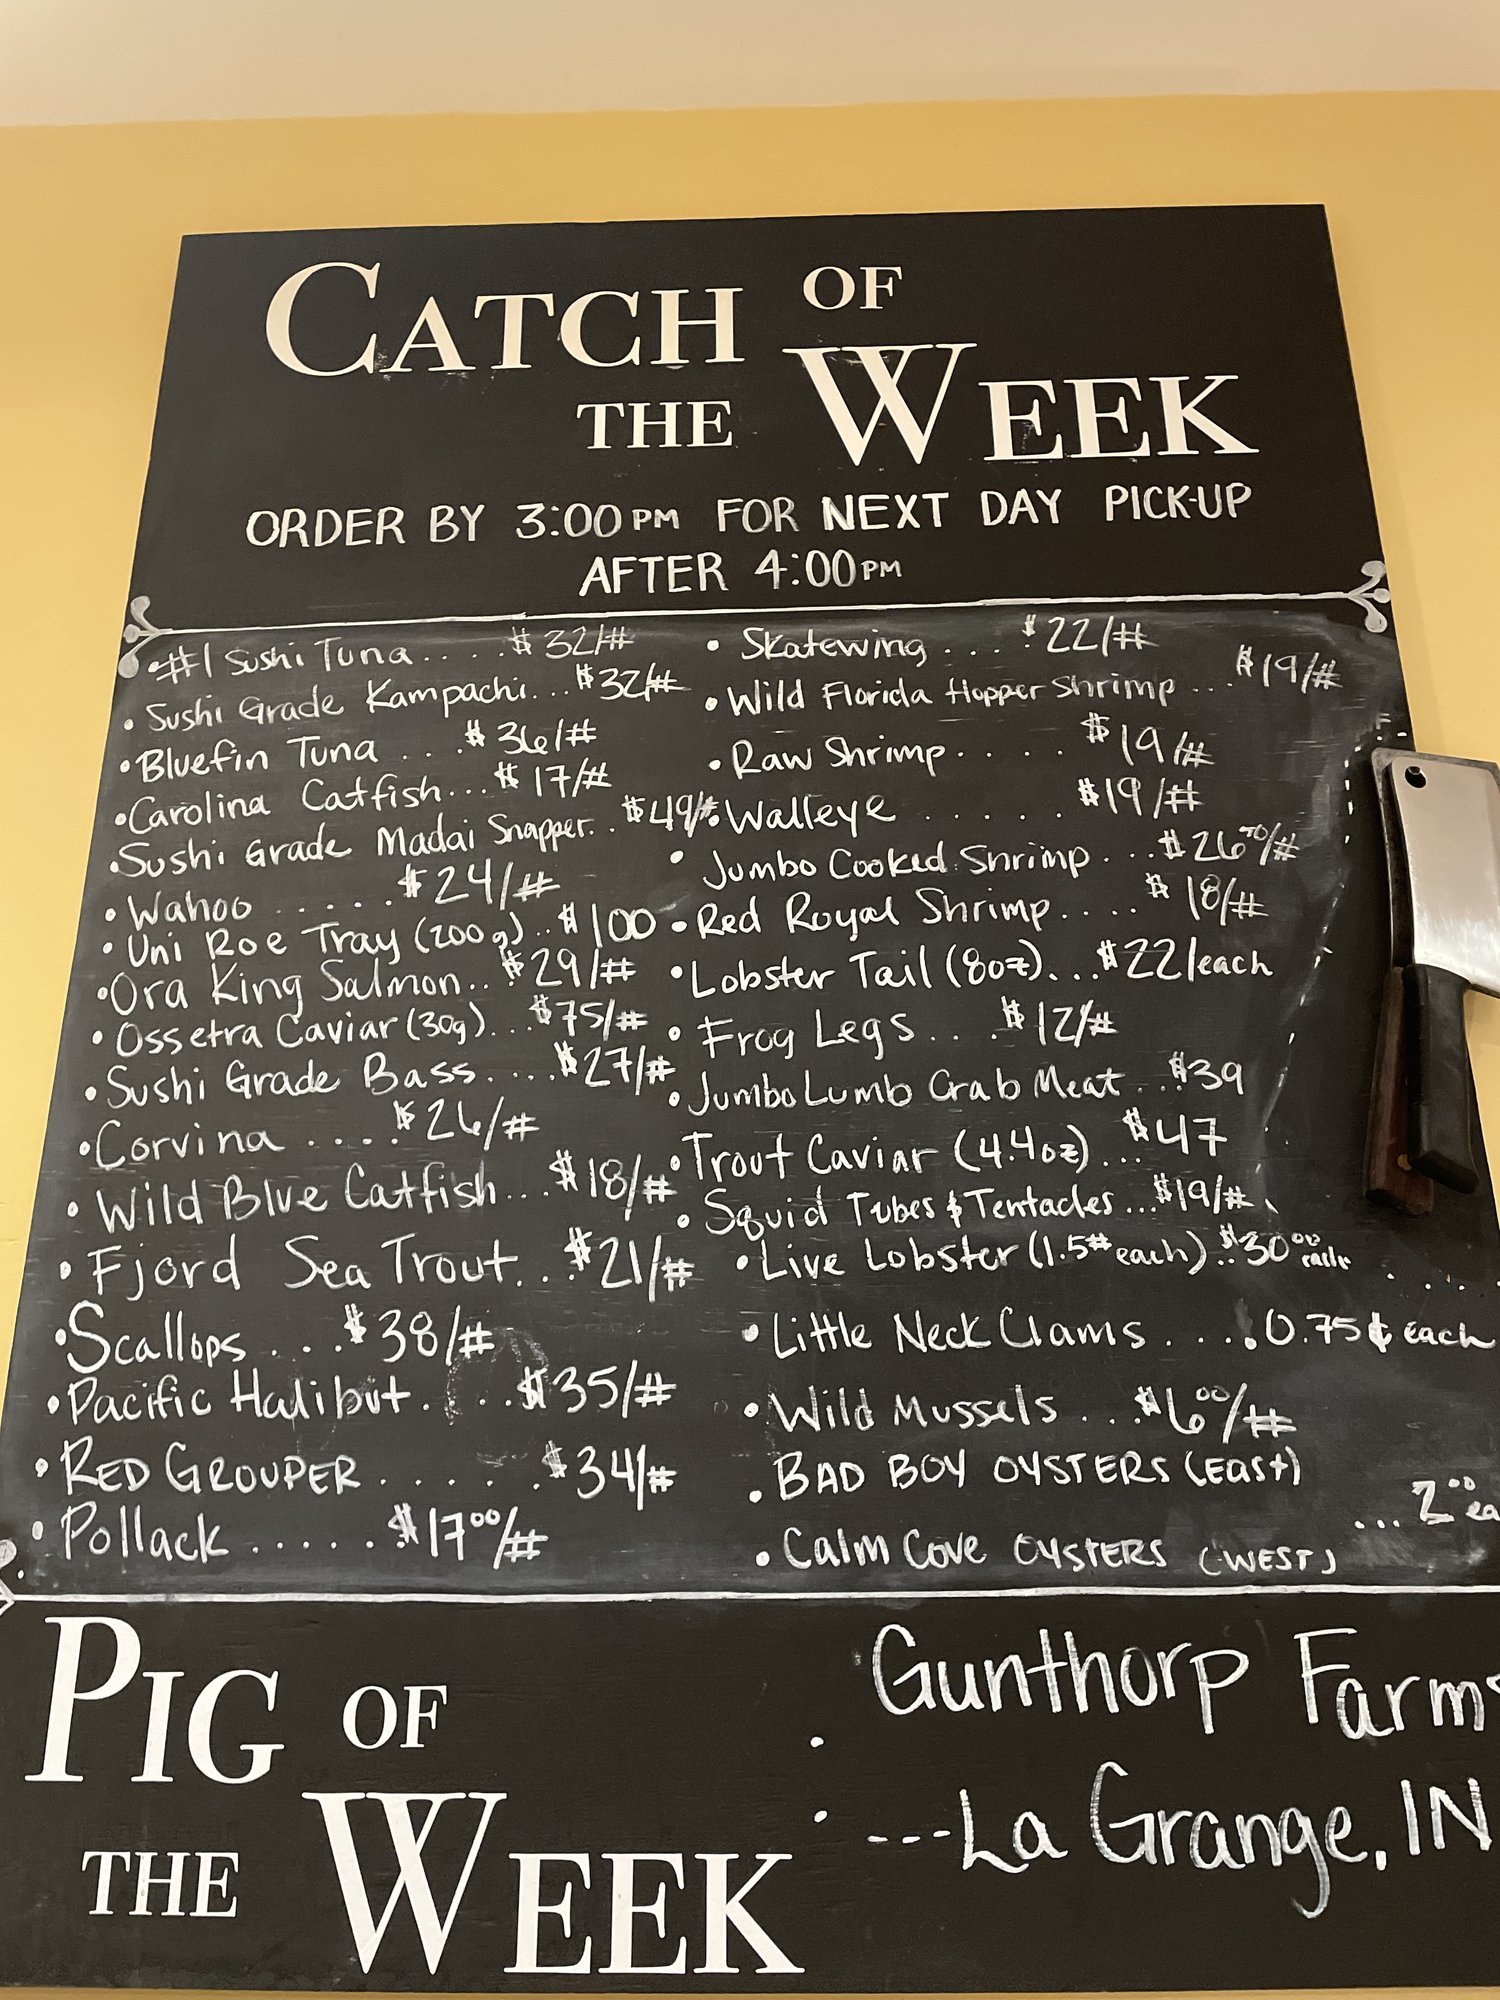 CATCH OF
THE WEEK
ORDER BY 3:00PM FOR NEXT DAY PICK-UP
AFTER 4:00PM
• #1 Sushi Tuna.....$32/#
• Sushi Grade Kampachi...$32/#
• Bluefin Tuna...$36/#
• Carolina Catfish...$17/#
• Sushi Grade Madai Snapper..$49/#
• Wahoo......$24/#
• Uni Roe Tray (200g)..$100
• Ora King Salmon...$29/#
• Ossetra Caviar (30g)...$75/#
• Sushi Grade Bass....$27/#
• Corvina....$26/#
• Wild Blue Catfish...$18/#
• Fjord Sea Trout...$21/#
• Scallops...$38/#
• Pacific Halibut...$35/#
• RED GROUPER......$34/#
• Pollack......$17.00/#
• Skatewing....$22/#
• Wild Florida Hopper Shrimp...$19/#
• Raw Shrimp.....$19/#
• Walleye......$19/#
• Jumbo Cooked Shrimp...$26.70/#
• Red Royal Shrimp....$18/#
• Lobster Tail (8oz)...$22/each
• Frog Legs...$12/#
• Jumbo Lumb Crab Meat...$39
• Trout Caviar (4.4oz)...$47
• Squid Tubes & Tentacles...$19/#
• Live Lobster (1.5# each)..$30.00 each
• Little Neck Clams.....0.75¢ each
• Wild Mussels...$6.00/#
• BAD BOY OYSTERS (East)
...2.00 ea
• Calm Cove OYSTERS (WEST)
PIG OF
THE WEEK
• Gunthorp Farms
• ---La Grange, IN